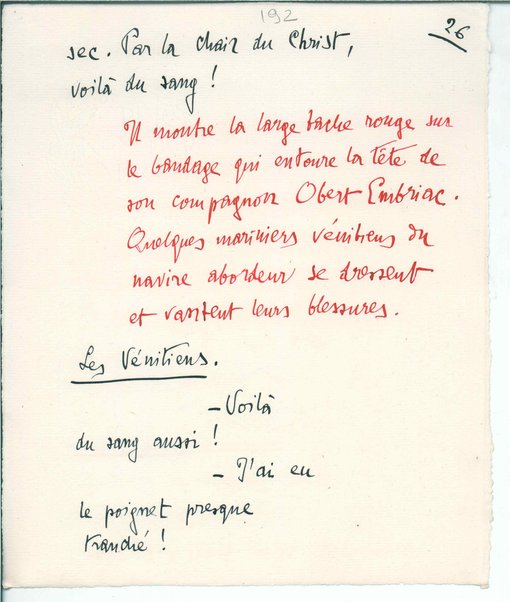 192
26
sec. Par la chair du Christ,
voilà du sang !
Il montre la large tache rouge sur
le bandage qui entoure la tête de
son compagnon Obert Embriac.
Quelques mariniers vénitiens du
navire abordeur se dressent
et vantent leurs blessures.
Les Vénitiens.
– Voilà
du sang aussi !
– J'ai eu
le poignet presque
tranché !